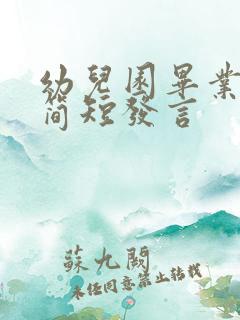 幼兒園畢業
簡短發言
蘇九闕
未經同意禁止轉載